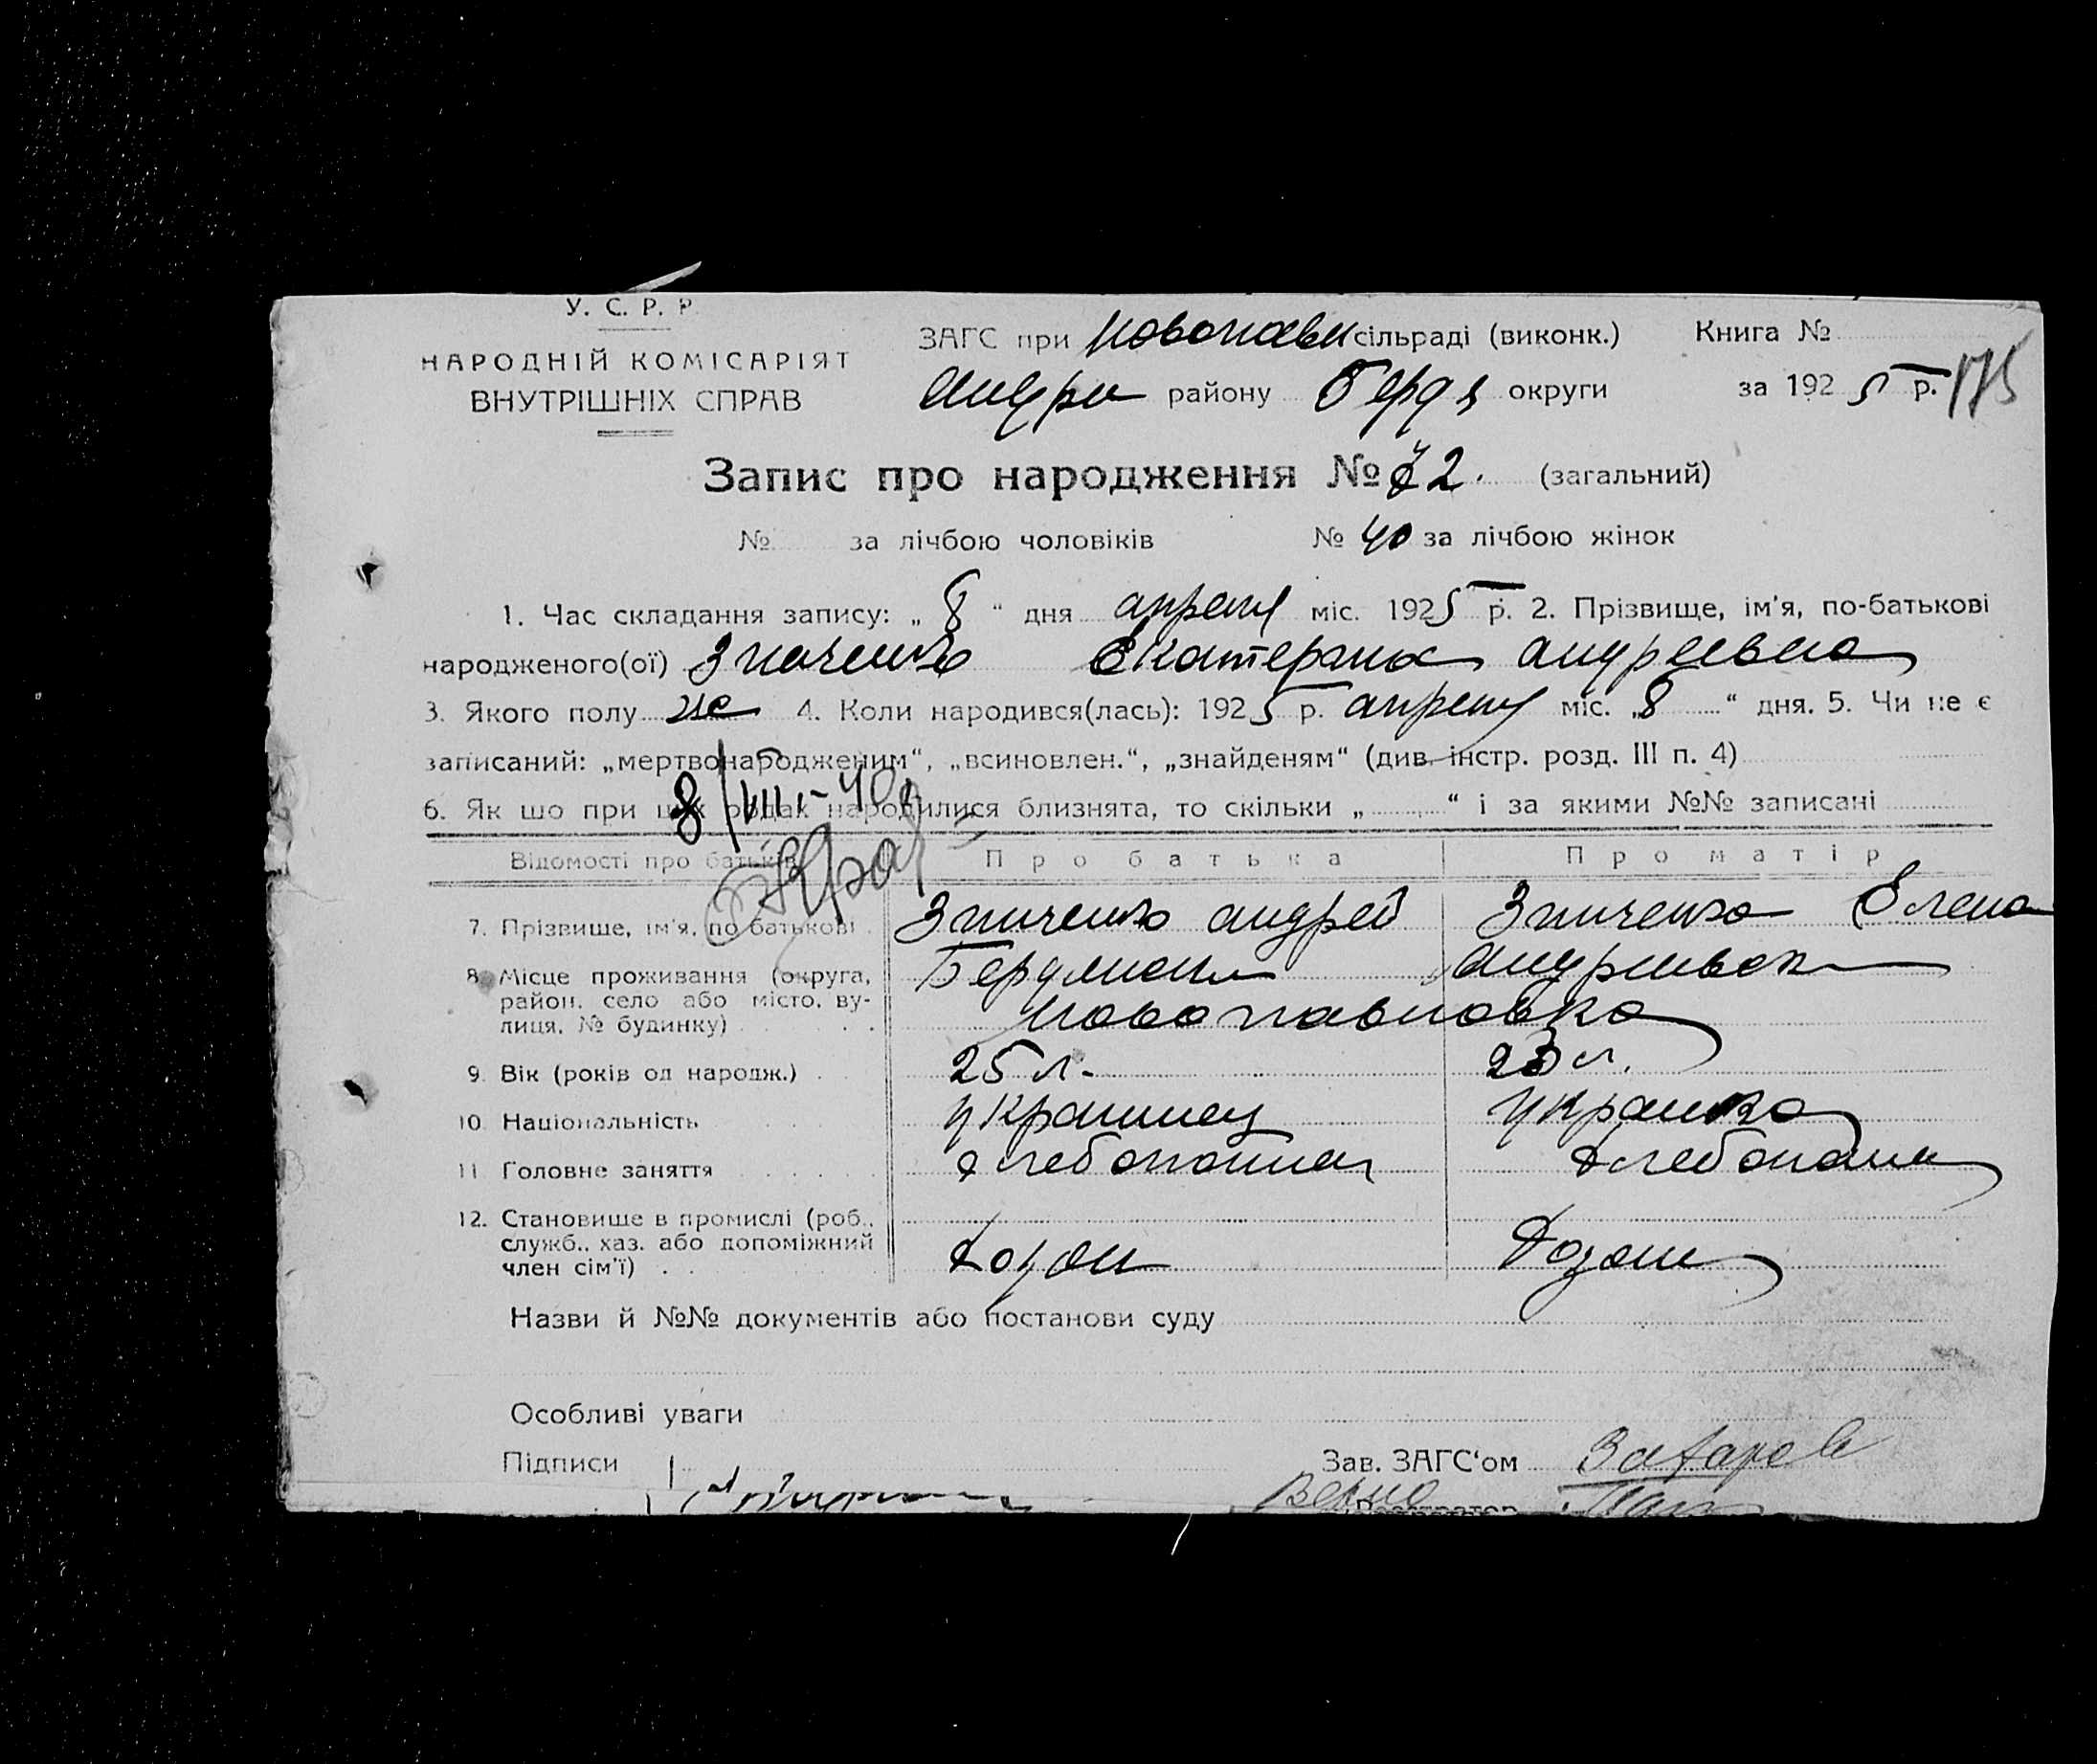 У. С. Р. Р.
НАРОДНІЙ КОМІСАРІЯТ
ВНУТРІШНІХ СПРАВ
ЗАГС при Новопавл сільраді (виконк.) Книга №
Андре району Бердя округи за 1925 р. 175
Запис про народження № 72. (загальний)
№ за лічбою чоловіків № 40 за лічбою жінок
1. Час складання запису: „ 8 “ дня апреля міс. 1925 р. 2. Прізвище, ім'я, по-батькові
народженого(ої) Зинченко Екатерина Андреевна
3. Якого полу же 4. Коли народився(лась): 1925 р. апреля міс. „8 “ дня. 5. Чи не є
записаний: „мертвонародженим“, „всиновлен.“, „знайденям“ (див. інстр. розд. III п. 4)
8/VIII-40
6. Як шо при цих родах народилися близнята, то скільки „ “ і за якими №№ записані
Відомості про батьків Про батька Про матір
7. Прізвище, ім'я, по батькові Зинченко Андрей Зинченко Елена
8. Місце проживання (округа, район, село або місто, вулиця, № будинку) Бердянск Андреевск
Новопавловка
9. Вік (років од народж.) 25 л. 23 л.
10. Національність Украинец Украинка
11 Головне заняття хлебопашец хлебопаш
12. Становише в промислі (роб., служб., хаз. або допоміжний член сім'ї) хозяи хозяи
Назви й №№ документів або постанови суду
Особливі уваги
Підписи Зав. ЗАГС‘ом Захаров
Верно